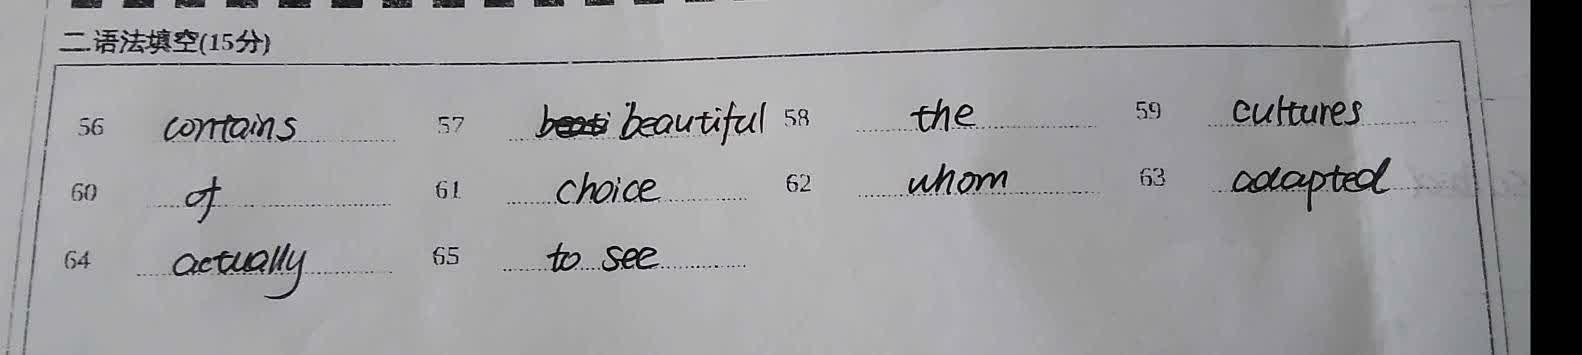 二.语法填空(15分)
56 contains 57 beautiful 58 the 59 cultures
60 of 61 choice 62 whom 63 adapted
64 actually 65 to see